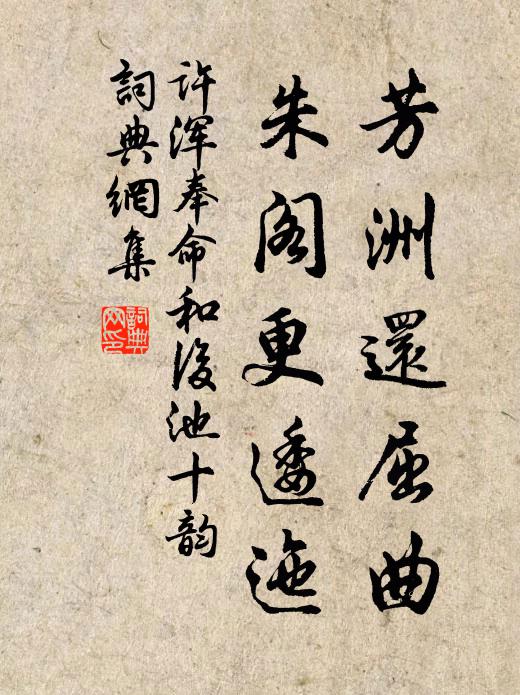 芳洲還屈曲
朱阁更逶迤
许浑奉命和後池十韵
詞典網集
詞典网印